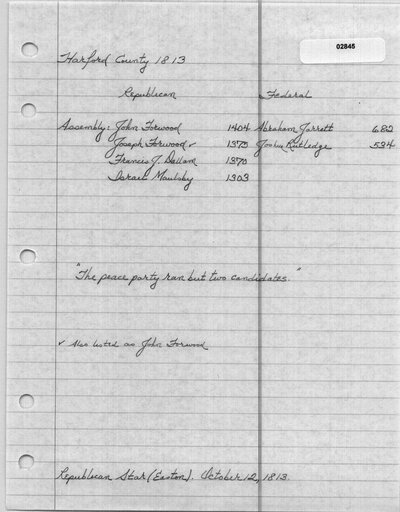 02845
Harford County 1813
Republican Federal
Assembly: John Forwood 1404 Abraham Jarrett 682
Joseph Forwood ✓ 1370 Joshua Rutledge 534
Francis J. Dallam 1370
Israel Maulsby 1303
"The peace party ran but two candidates."
✓ Also listed as John Forwood
Republican Star (Easton). October 12, 1813.